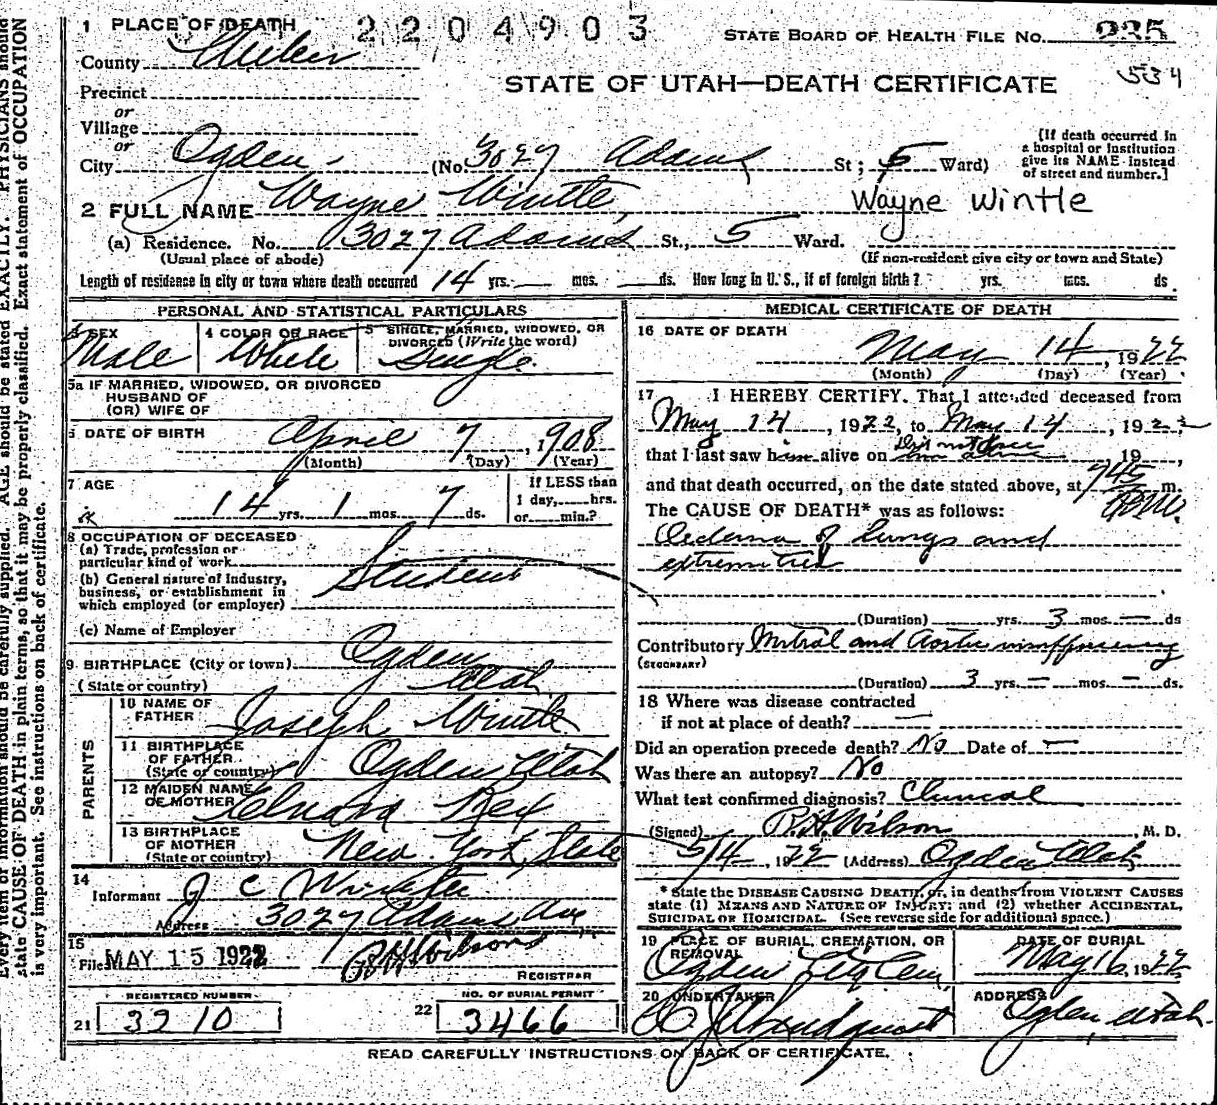 1 PLACE OF DEATH 2204903 STATE BOARD OF HEALTH FILE No. 235
County Weber
534
STATE OF UTAH—DEATH CERTIFICATE
Precinct
or
Village
or
City Ogden (No. 3027 Adams St; 5 Ward)
[If death occurred in
a hospital or institution
give its NAME instead
of street and number.]
2 FULL NAME Wayne Wintle, Wayne Wintle
(a) Residence. No. 3027 Adams St., 5 Ward.
(Usual place of abode) (If non-resident give city or town and State)
Length of residence in city or town where death occurred 14 yrs. mos. ds. How long in U. S., if of foreign birth? yrs. mos. ds.
PERSONAL AND STATISTICAL PARTICULARS
3 SEX 4 COLOR OR RACE 5 SINGLE, MARRIED, WIDOWED, OR
DIVORCED (Write the word)
Male White Single.
5a IF MARRIED, WIDOWED, OR DIVORCED
HUSBAND OF
(OR) WIFE OF
6 DATE OF BIRTH April 7, 1908
(Month) (Day) (Year)
7 AGE
14 yrs. 1 mos. 7 ds.
If LESS than
1 day, hrs.
or min.?
8 OCCUPATION OF DECEASED
(a) Trade, profession or
particular kind of work Student
(b) General nature of Industry,
business, or establishment in
which employed (or employer)
(c) Name of Employer
9 BIRTHPLACE (City or town) Ogden
(State or country) Utah
PARENTS
10 NAME OF
FATHER Joseph Wintle
11 BIRTHPLACE
OF FATHER
(State or country) Ogden Utah
12 MAIDEN NAME
OF MOTHER Rex
13 BIRTHPLACE
OF MOTHER
(State or country) New York State
14
Informant J C Wintle
Address 3027 Adams Ave
15
Filed MAY 15 1922
REGISTRAR
REGISTERED NUMBER
21 3210
NO. OF BURIAL PERMIT
22 3466
MEDICAL CERTIFICATE OF DEATH
16 DATE OF DEATH
May 14 1922
(Month) (Day) (Year)
17 I HEREBY CERTIFY. That I attended deceased from
May 14, 1922, to May 14, 1922
that I last saw him alive on 19
and that death occurred, on the date stated above, at 7 45 m.
P.M.
The CAUSE OF DEATH* was as follows:
Oedema of lungs and
extremities
(Duration) yrs. 3 mos. — ds
Contributory Mitral and Aortic insufficiency
(SECONDARY)
(Duration) 3 yrs. — mos. — ds.
18 Where was disease contracted
if not at place of death? —
Did an operation precede death? No Date of —
Was there an autopsy? No
What test confirmed diagnosis? Clinical
(Signed) R.H. Wilson, M. D.
5/14, 1922 (Address) Ogden Utah
* State the DISEASE CAUSING DEATH, or, in deaths from VIOLENT CAUSES
state (1) MEANS AND NATURE OF INJURY; and (2) whether ACCIDENTAL,
SUICIDAL OR HOMICIDAL. (See reverse side for additional space.)
19 PLACE OF BURIAL, CREMATION, OR
REMOVAL
Ogden City Cem.
DATE OF BURIAL
May 16, 1922
20 UNDERTAKER
ADDRESS
Ogden, Utah.
READ CAREFULLY INSTRUCTIONS ON BACK OF CERTIFICATE.
Every item of information should be carefully supplied. AGE should be stated EXACTLY. PHYSICIANS should
state CAUSE OF DEATH in plain terms, so that it may be properly classified. Exact statement of OCCUPATION
is very important. See instructions on back of certificate.